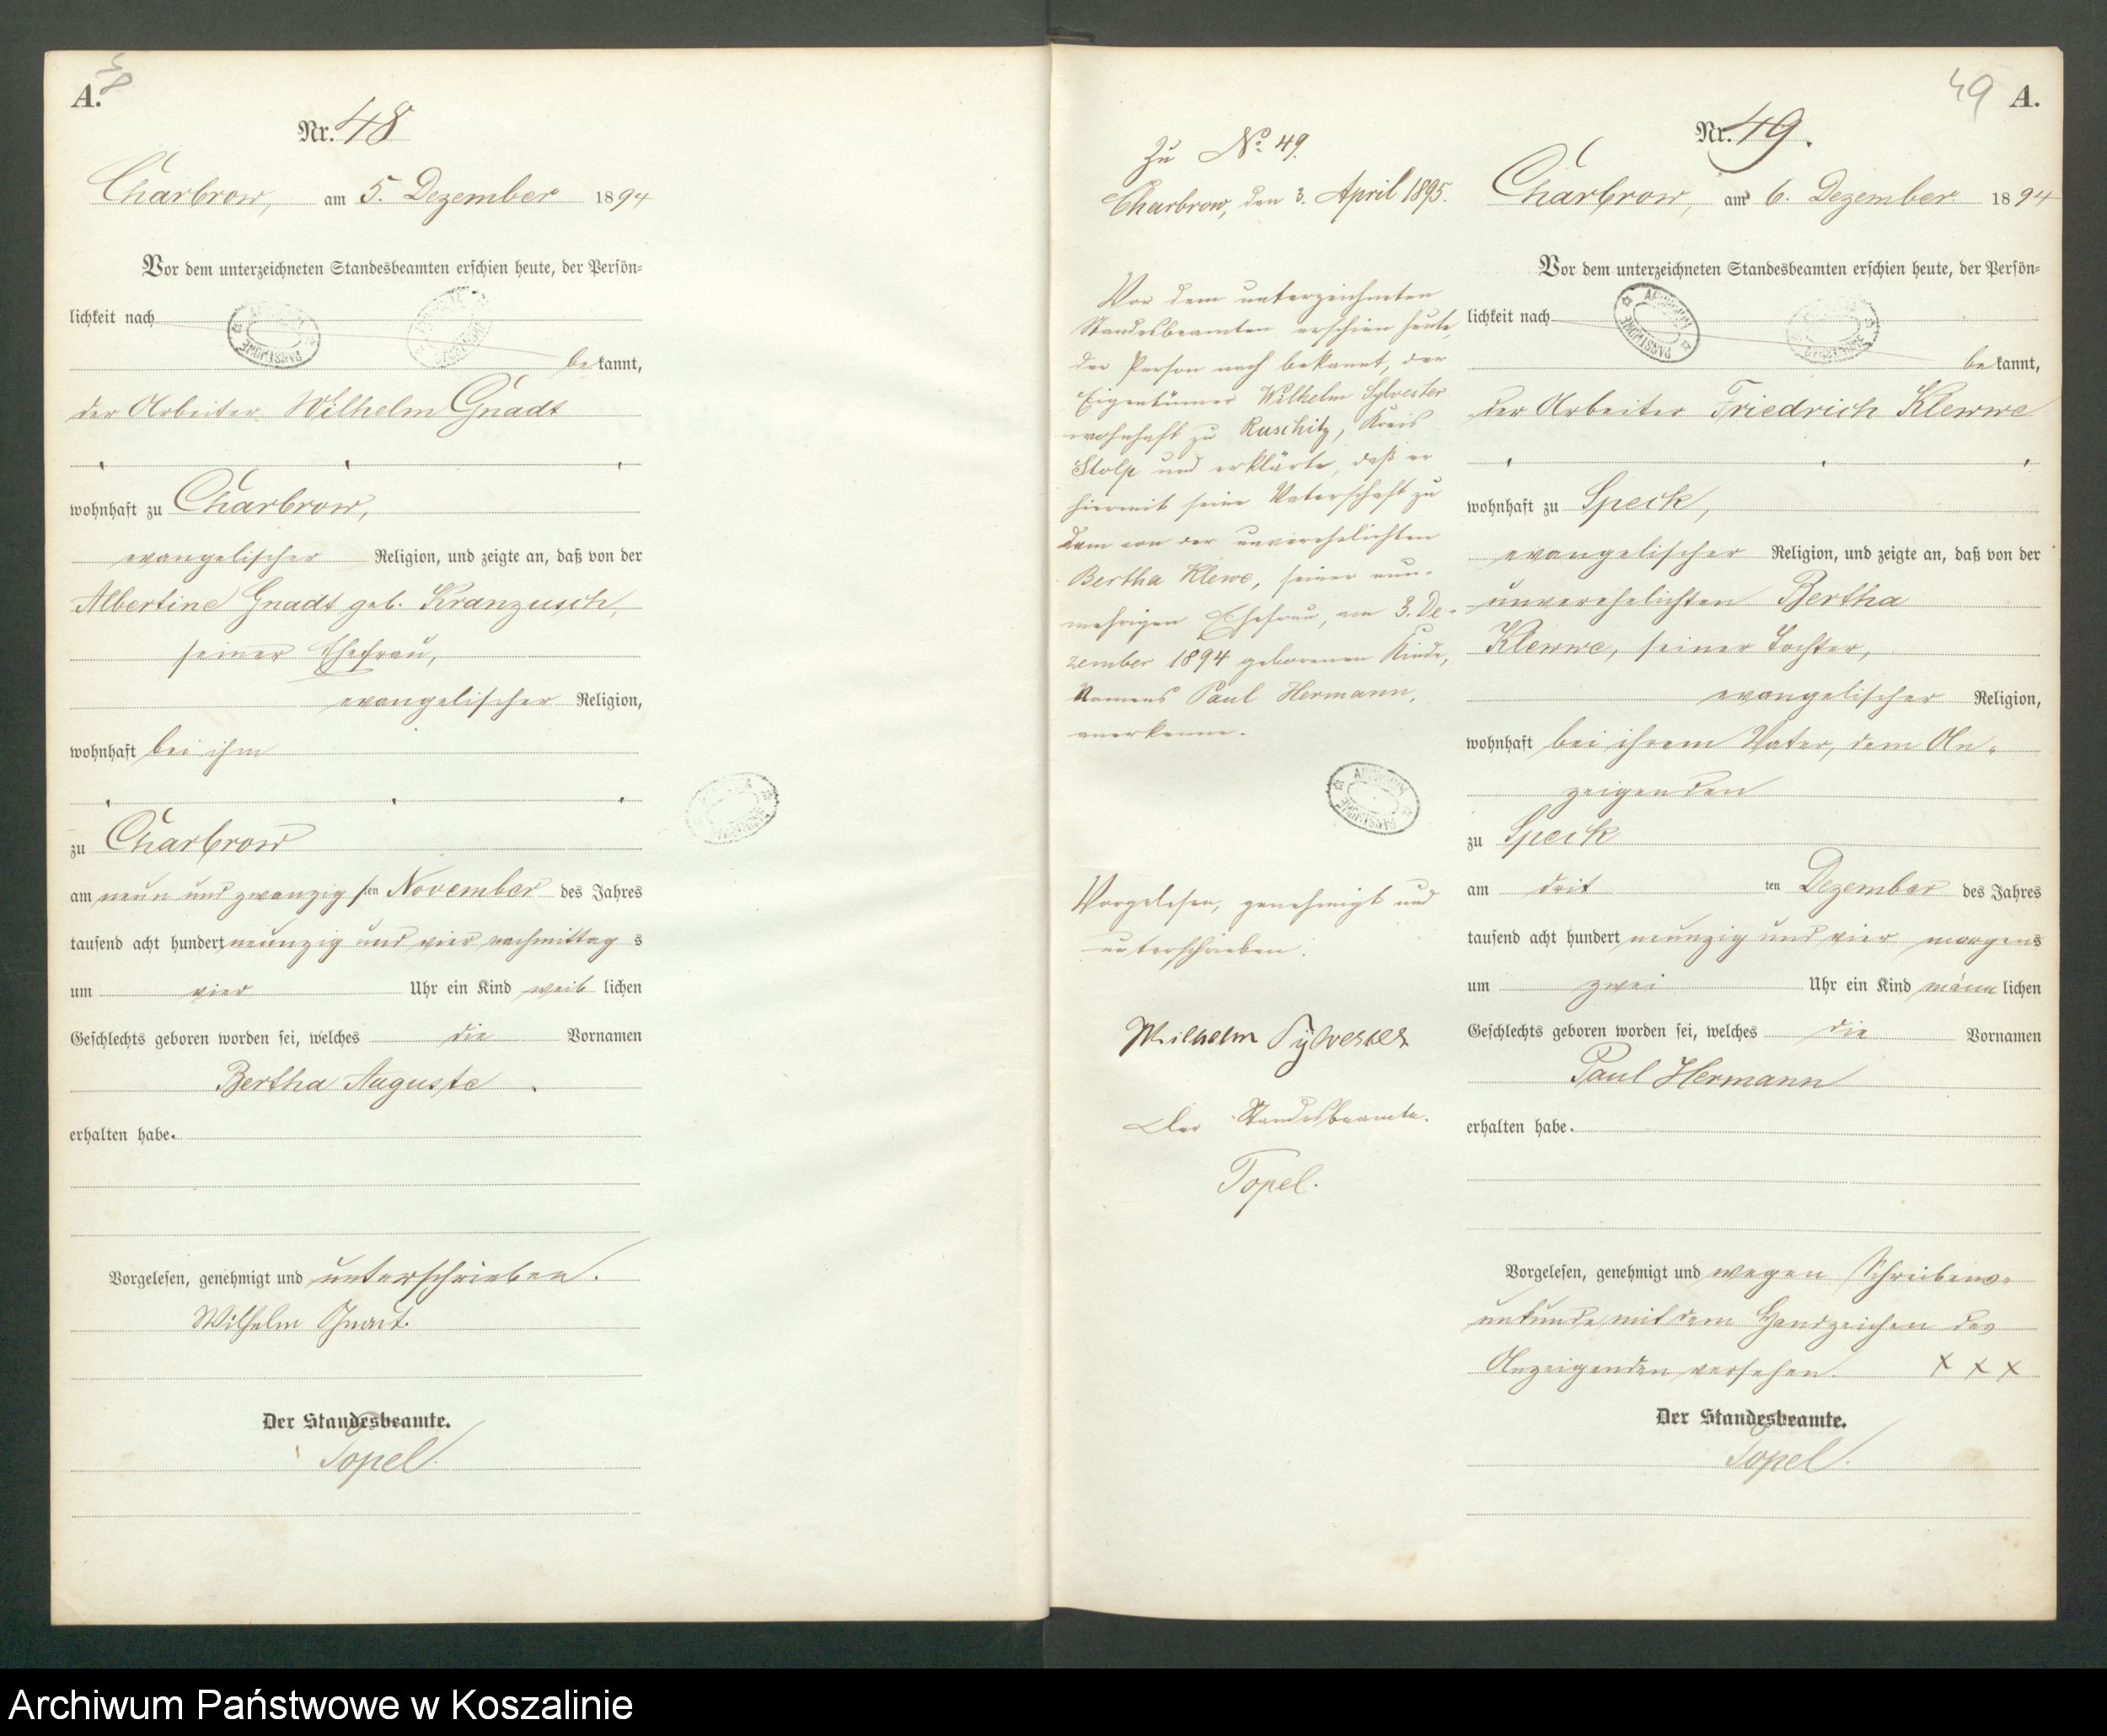 A.
48
Nr. 48
Charbrow, am 5. Dezember 1894
Vor dem unterzeichneten Standesbeamten erschien heute, der Persön-
lichkeit nach
bekannt,
der Arbeiter Wilhelm Gnadt
wohnhaft zu Charbrow,
evangelischer Religion, und zeigte an, daß von der
Albertine Gnadt geb. Kranzusch,
seiner Ehefrau,
evangelischer Religion,
wohnhaft bei ihm
zu Charbrow
am neun und zwanzigsten November des Jahres
tausend acht hundert neunzig und vier nachmittags
um vier Uhr ein Kind weiblichen
Geschlechts geboren worden sei, welches die Vornamen
Bertha Auguste
erhalten habe.
Vorgelesen, genehmigt und unterschrieben.
Wilhelm Gnadt.
Der Standesbeamte.
Topel.
Zu No. 49.
Charbrow, den 3. April 1895.
Vor dem unterzeichneten
Standesbeamten erschien heute,
der Person nach bekannt, der
Eigentümer Wilhelm Sylvester
wohnhaft zu Ruschitz, Kreis
Stolp und erklärte, daß er
hiermit seine Vaterschaft zu
dem von der unverehelichten
Bertha Klewe, seiner nun-
mehrigen Ehefrau, am 3. De-
zember 1894 geborenen Kinde,
Namens Paul Hermann,
anerkenne.
Vorgelesen, genehmigt und
unterschrieben.
Wilhelm Sylvester
Der Standesbeamte.
Topel.
49 A.
Nr. 49.
Charbrow, am 6. Dezember 1894
Vor dem unterzeichneten Standesbeamten erschien heute, der Persön-
lichkeit nach
bekannt,
der Arbeiter Friedrich Klewwe
wohnhaft zu Speck,
evangelischer Religion, und zeigte an, daß von der
unverehelichten Bertha
Klewwe, seiner Tochter,
evangelischer Religion,
wohnhaft bei ihrem Vater, dem An-
zeigenden
zu Speck
am dritten Dezember des Jahres
tausend acht hundert neunzig und vier morgens
um zwei Uhr ein Kind männlichen
Geschlechts geboren worden sei, welches die Vornamen
Paul Hermann
erhalten habe.
Vorgelesen, genehmigt und wegen Schreibens-
unkunde mit dem Handzeichen des
Anzeigenden versehen. X X X
Der Standesbeamte.
Topel.
Archiwum Państwowe w Koszalinie